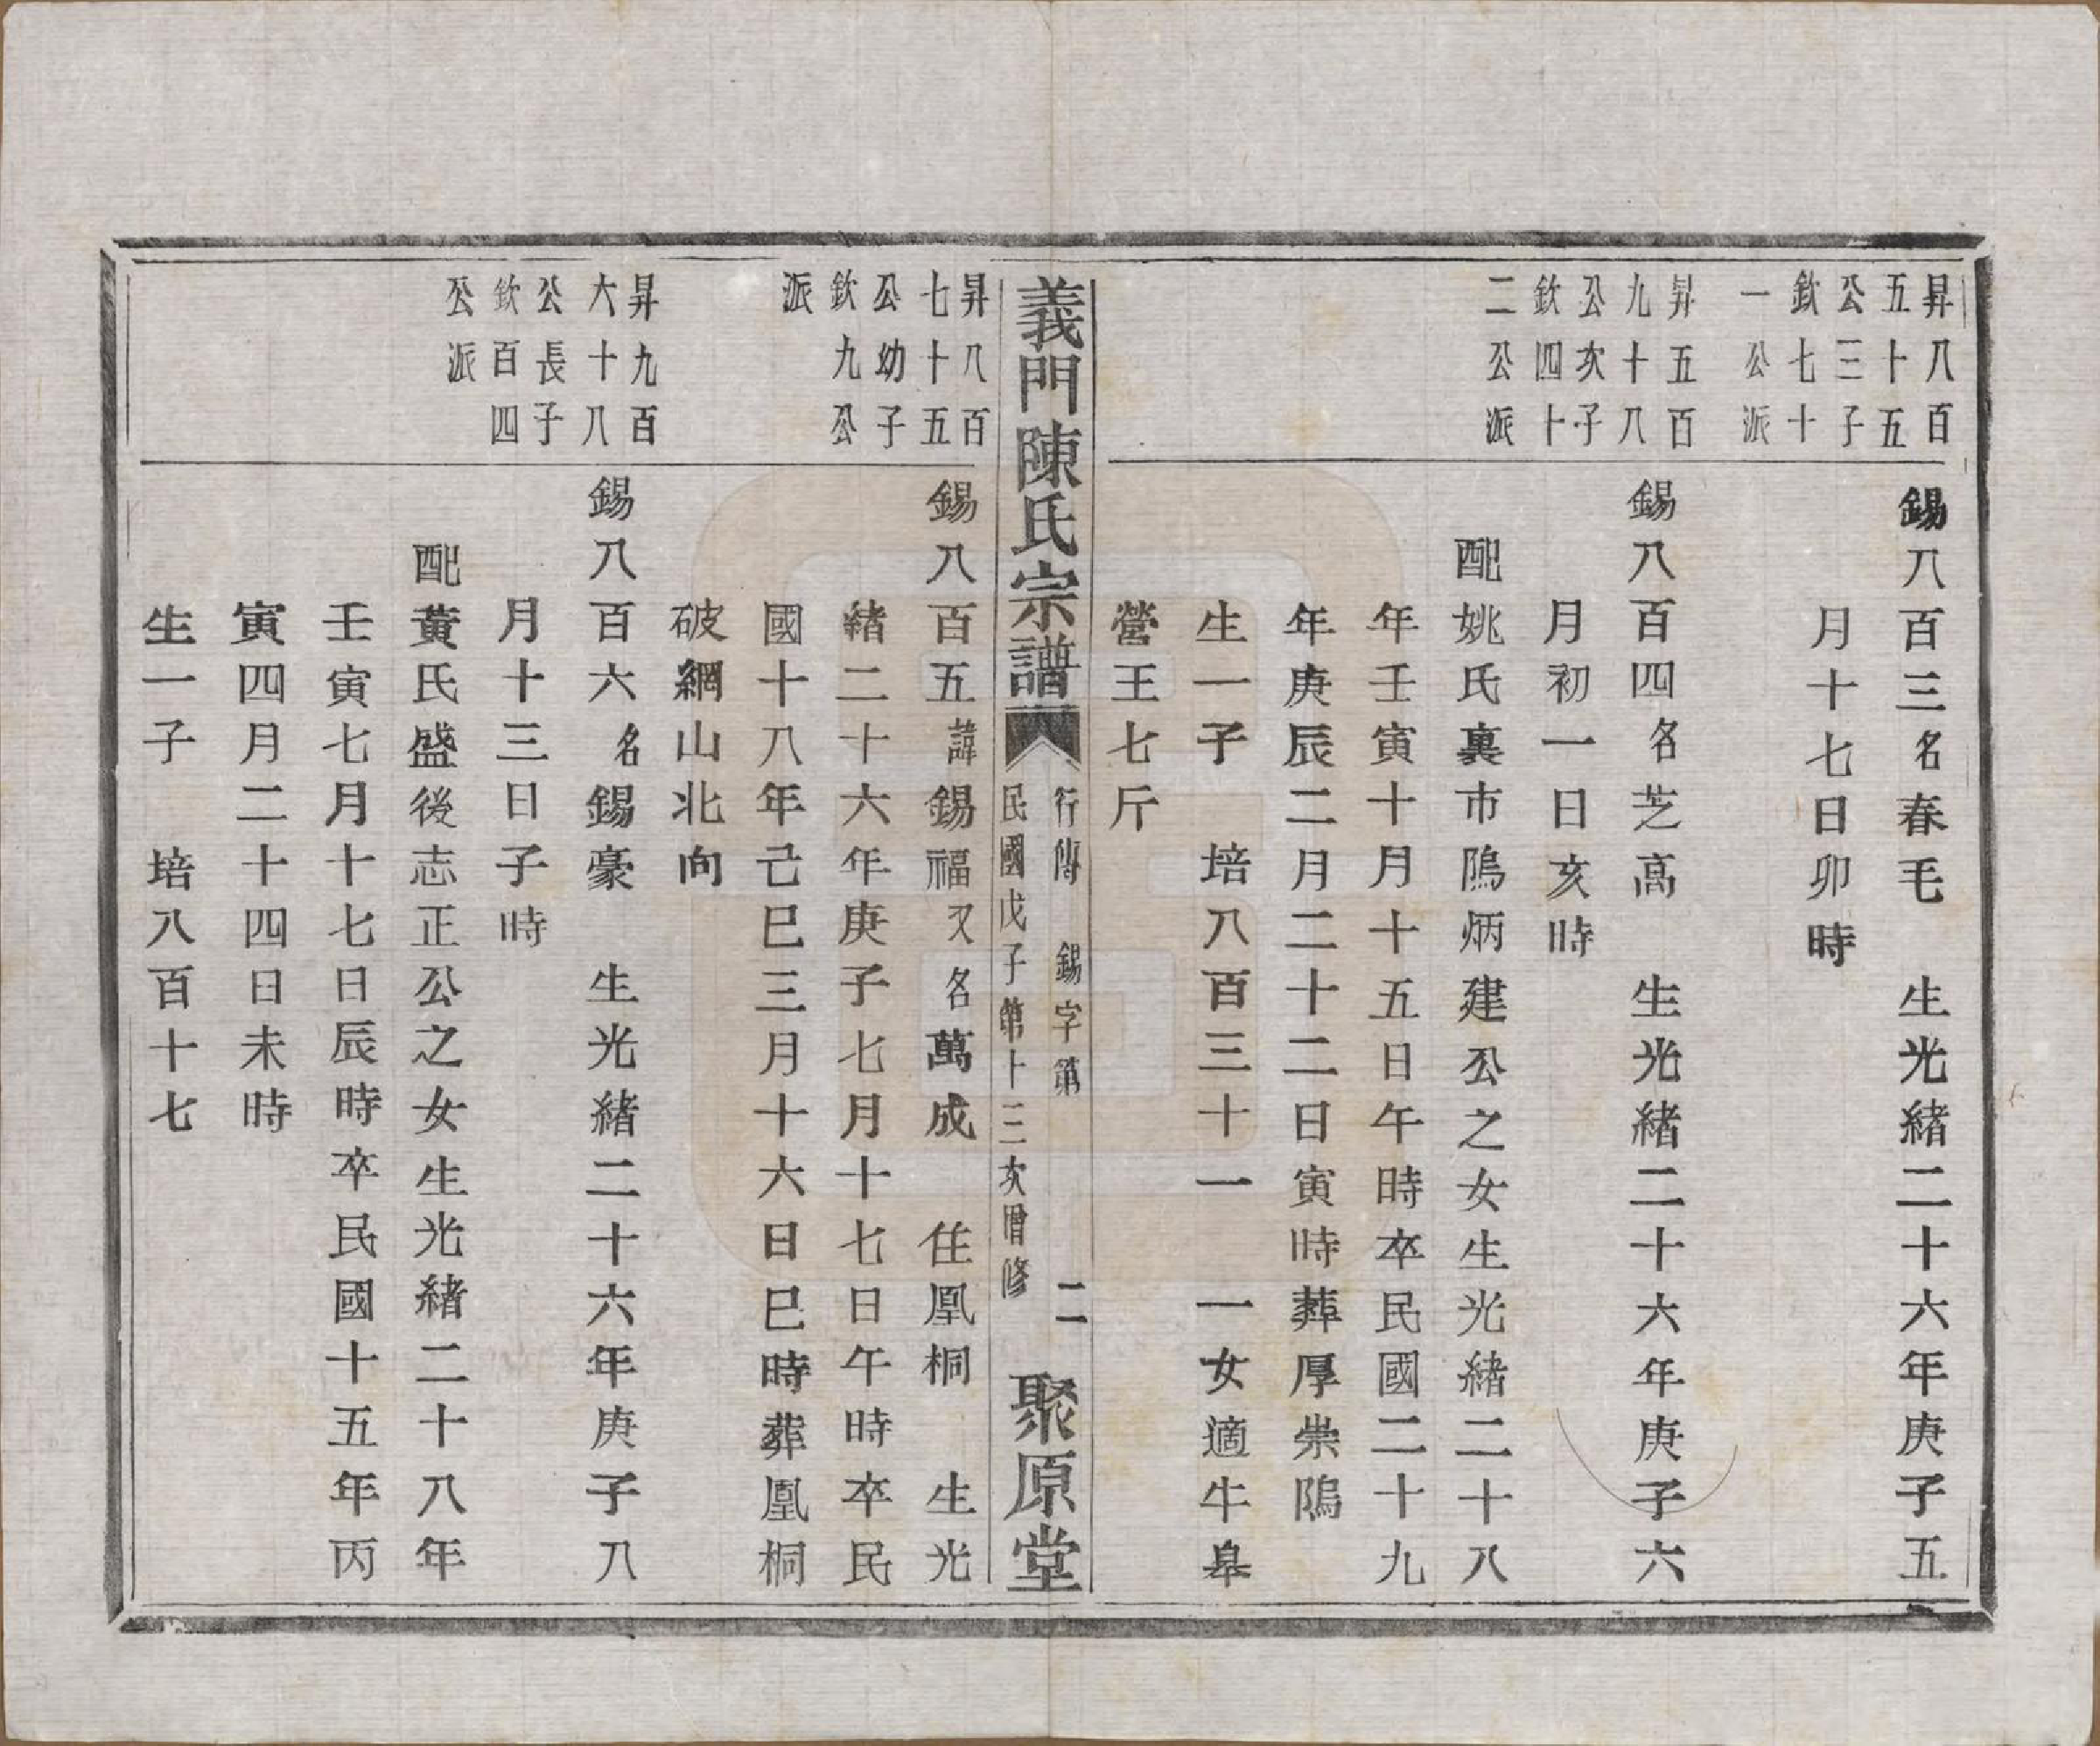 昇八百
五十五
公三子
欽七十
一公派
錫八百三名春毛　生光緒二十六年庚子五
月十七日卯時
昇五百
九十八
公次子
欽四十
二公派
錫八百四名芝高　生光緒二十六年庚子六
月初一日亥時
配姚氏裏市隝炳建公之女生光緒二十八
年壬寅十月十五日午時卒民國二十九
年庚辰二月二十二日寅時葬厚崇隝
生一子　培八百三十一　一女適牛皐
營王七斤
義門陳氏宗譜
行傳　錫字第　二
民國戊子第十三次增修
聚原堂
昇八百
七十五
公幼子
欽九公
派
錫八百五諱錫福又名萬成　住凰桐　生光
緒二十六年庚子七月十七日午時卒民
國十八年己巳三月十六日巳時葬凰桐
破網山北向
昇九百
六十八
公長子
欽百四
公派
錫八百六名錫豪　生光緒二十六年庚子八
月十三日子時
配黃氏盛後志正公之女生光緒二十八年
壬寅七月十七日辰時卒民國十五年丙
寅四月二十四日未時
生一子　培八百十七